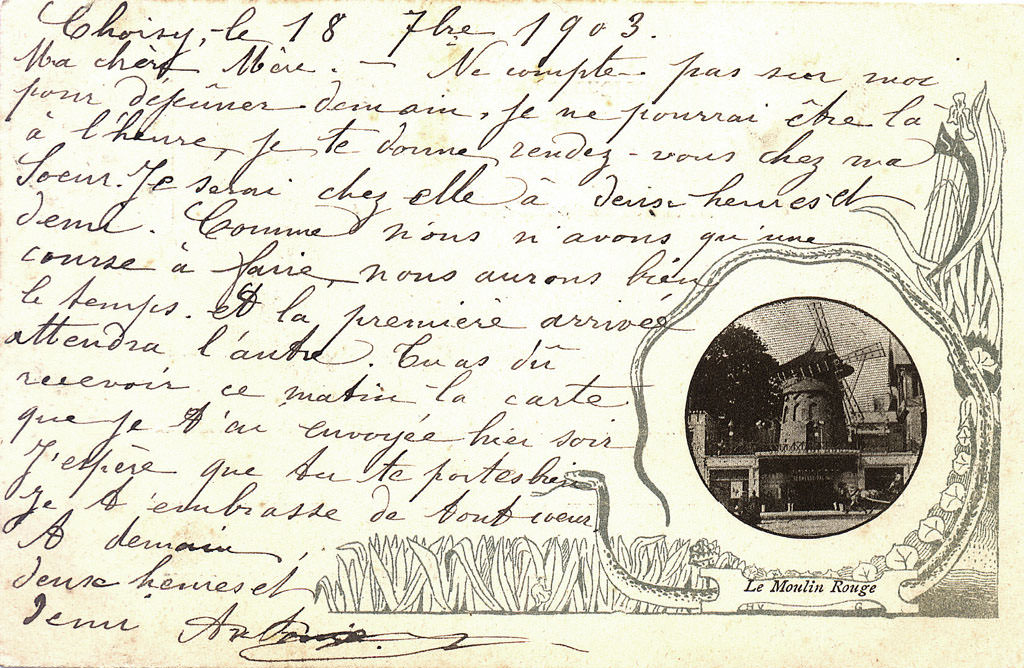 Choisy, le 18 7bre 1903.
Ma chère Mère. — Ne compte pas sur moi
pour déjeûner demain, je ne pourrai être là
à l'heure, je te donne rendez-vous chez ma
Soeur. Je serai chez elle à deux heures et
demi. Comme nous n'avons qu'une
course à faire, nous aurons bien
le temps. et la première arrivée
attendra l'autre. Tu as dû
recevoir ce matin la carte
que je t'ai envoyée hier soir
J'espère que tu te portes bien
Je t'embrasse de tout coeur
A demain,
deux heures et
demi
Le Moulin Rouge